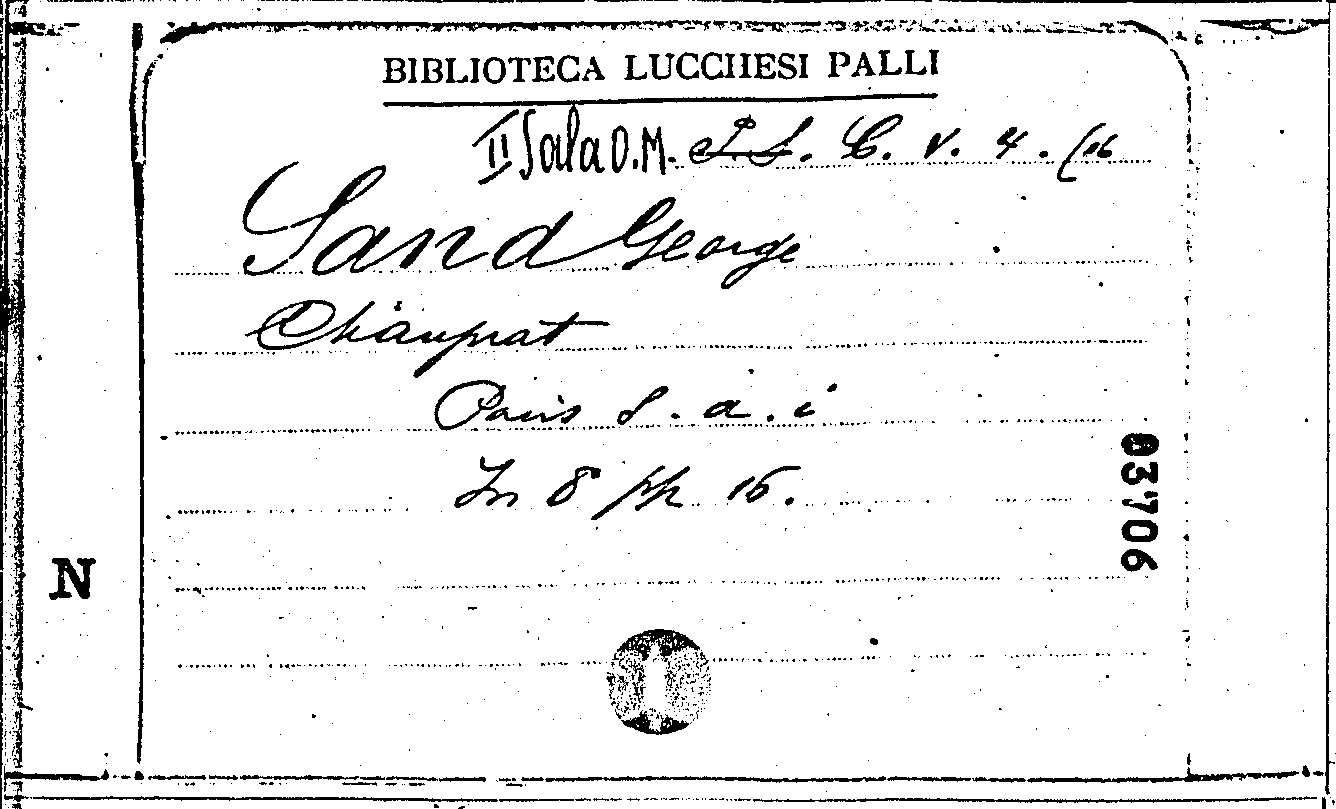 BIBLIOTECA LUCCHESI PALLI
II Sala O.M. P.S. C. V. 4. (16
Sand George
Chäuprat
Paris S. a. i
In 8° pp 16.
03706
N